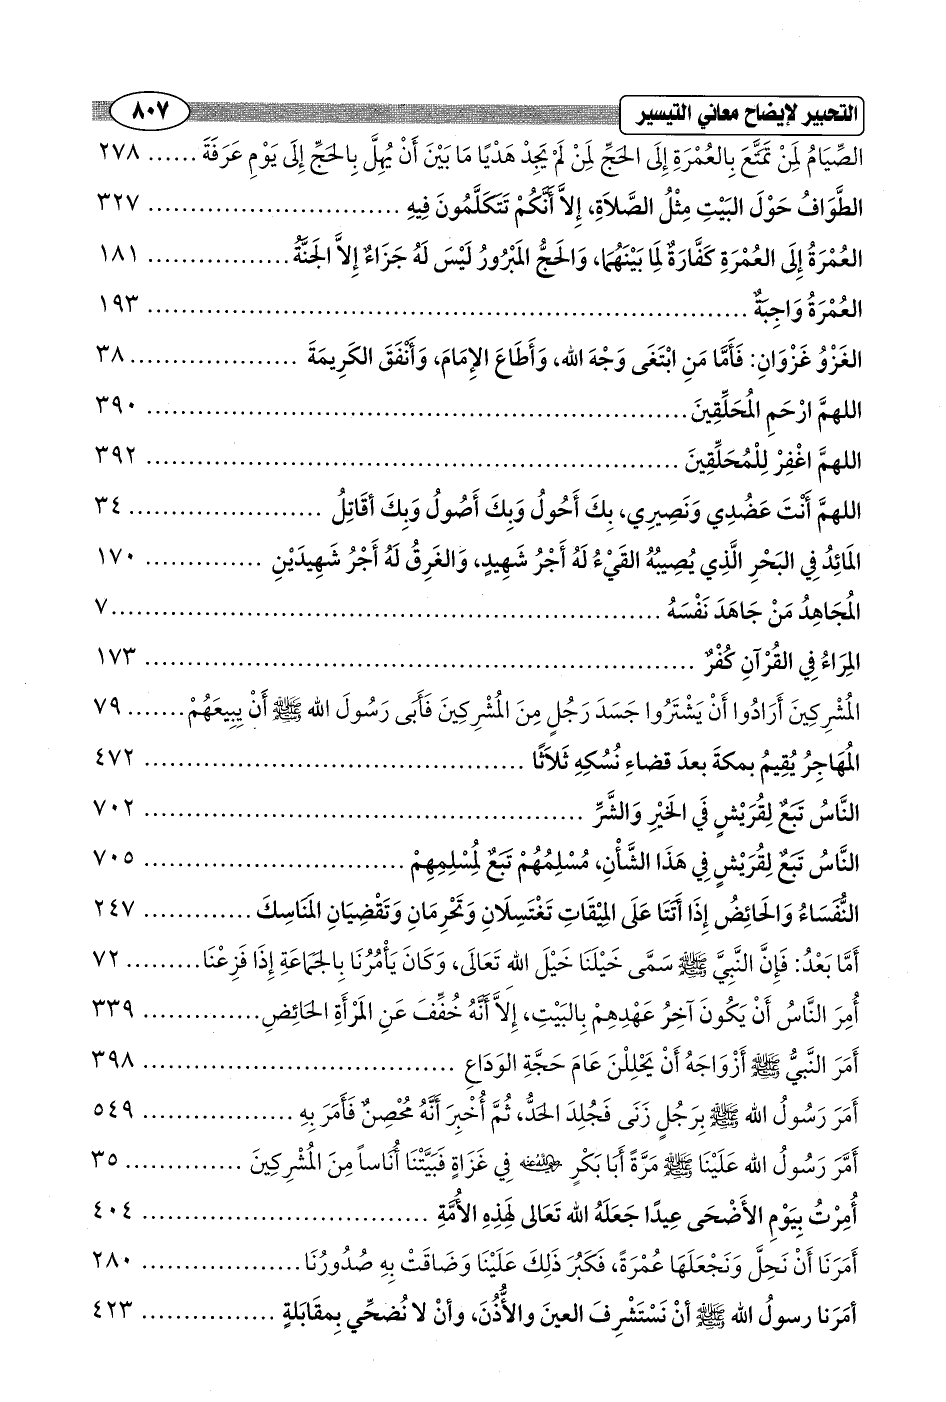 التحبير لإيضاح معاني التيسير ٨٠٧
الصِّيَامُ لِمَنْ تَمَتَّعَ بِالعُمْرَةِ إِلَى الحَجِّ لِمَنْ لَمْ يَجِدْ هَدْيًا مَا بَيْنَ أَنْ يُهِلَّ بِالحَجِّ إِلَى يَوْمِ عَرَفَةَ ...... ٢٧٨
الطَّوَافُ حَوْلَ البَيْتِ مِثْلُ الصَّلاَةِ، إِلاَّ أَنَّكُمْ تَتَكَلَّمُونَ فِيهِ ...... ٣٢٧
العُمْرَةُ إِلَى العُمْرَةِ كَفَّارَةٌ لِمَا بَيْنَهُمَا، وَالحَجُّ المَبْرُورُ لَيْسَ لَهُ جَزَاءٌ إِلاَّ الجَنَّةُ ...... ١٨١
العُمْرَةُ وَاجِبَةٌ ...... ١٩٣
الغَزْوُ غَزْوَانِ: فَأَمَّا مَنِ ابْتَغَى وَجْهَ الله، وَأَطَاعَ الإِمَامَ، وَأَنْفَقَ الكَرِيمَةَ ...... ٣٨
اللهمَّ ارْحَمِ المُحَلِّقِينَ ...... ٣٩٠
اللهمَّ اغْفِرْ لِلْمُحَلِّقِينَ ...... ٣٩٢
اللهمَّ أَنْتَ عَضُدِي وَنَصِيرِي، بِكَ أَحُولُ وَبِكَ أَصُولُ وَبِكَ أقَاتِلُ ...... ٣٤
المَائِدُ فِي البَحْرِ الَّذِي يُصِيبُهُ القَيْءُ لَهُ أَجْرُ شَهِيدٍ، وَالغَرِقُ لَهُ أَجْرُ شَهِيدَيْنِ ...... ١٧٠
المُجَاهِدُ مَنْ جَاهَدَ نَفْسَهُ ...... ٧
المِرَاءُ فِي القُرْآنِ كُفْرٌ ...... ١٧٣
المُشْرِكِينَ أَرَادُوا أَنْ يَشْتَرُوا جَسَدَ رَجُلٍ مِنَ المُشْرِكِينَ فَأَبَى رَسُولَ الله ﷺ أَنْ يَبِيعَهُمْ ...... ٧٩
المُهَاجِرُ يُقِيمُ بمكةَ بعدَ قضاءِ نُسُكِهِ ثَلاَثًا ...... ٤٧٢
النَّاسُ تَبَعٌ لِقُرَيْشٍ فِي الخَيْرِ وَالشَّرِّ ...... ٧٠٢
النَّاسُ تَبَعٌ لِقُرَيْشٍ فِي هَذَا الشَّأْنِ، مُسْلِمُهُمْ تَبَعٌ لِمُسْلِمِهِمْ ...... ٧٠٥
النُّفَسَاءُ وَالحَائِضُ إِذَا أَتَتَا عَلَى المِيْقَاتِ تَغْتَسِلَانِ وَتَحْرِمَانِ وَتَقْضِيَانِ المَنَاسِكَ ...... ٢٤٧
أَمَّا بَعْدُ: فَإِنَّ النَّبِيَّ ﷺ سَمَّى خَيْلَنَا خَيْلَ الله تَعَالَى، وَكَانَ يَأْمُرُنَا بِالجَمَاعَةِ إِذَا فَزِعْنَا ...... ٧٢
أُمِرَ النَّاسُ أَنْ يَكُونَ آخِرُ عَهْدِهِمْ بِالبَيْتِ، إِلاَّ أَنَّهُ خُفِّفَ عَنِ المَرْأَةِ الحَائِضِ ...... ٣٣٩
أَمَرَ النَّبِيُّ ﷺ أَزْوَاجَهُ أَنْ يَحْلِلْنَ عَامَ حَجَّةِ الوَدَاعِ ...... ٣٩٨
أَمَرَ رَسُولُ الله ﷺ بِرَجُلٍ زَنَى فَجُلِدَ الحَدُّ، ثُمَّ أُخْبِرَ أَنَّهُ مُحْصِنٌ فَأَمَرَ بِهِ ...... ٥٤٩
أَمَّرَ رَسُولُ الله عَلَيْنَا ﷺ مَرَّةً أَبَا بَكْرٍ رضي الله عنه فِي غَزَاةٍ فَبَيَّتْنَا أُنَاساً مِنَ المُشْرِكِينَ ...... ٣٥
أُمِرْتُ بِيَوْمِ الأَضْحَى عِيدًا جَعَلَهُ الله تَعَالى لِهَذِهِ الأُمَّةِ ...... ٤٠٤
أَمَرَنَا أَنْ نَحِلَّ وَنَجْعَلَهَا عُمْرَةً، فَكَبُرَ ذَلِكَ عَلَيْنَا وَضَاقَتْ بِهِ صُدُورُنَا ...... ٢٨٠
أمَرَنا رسولُ الله ﷺ أنْ نَسْتَشْرِفَ العينَ والأُذُنَ، وأنْ لا نُضحِّي بِمقَابلةٍ ...... ٤٢٣